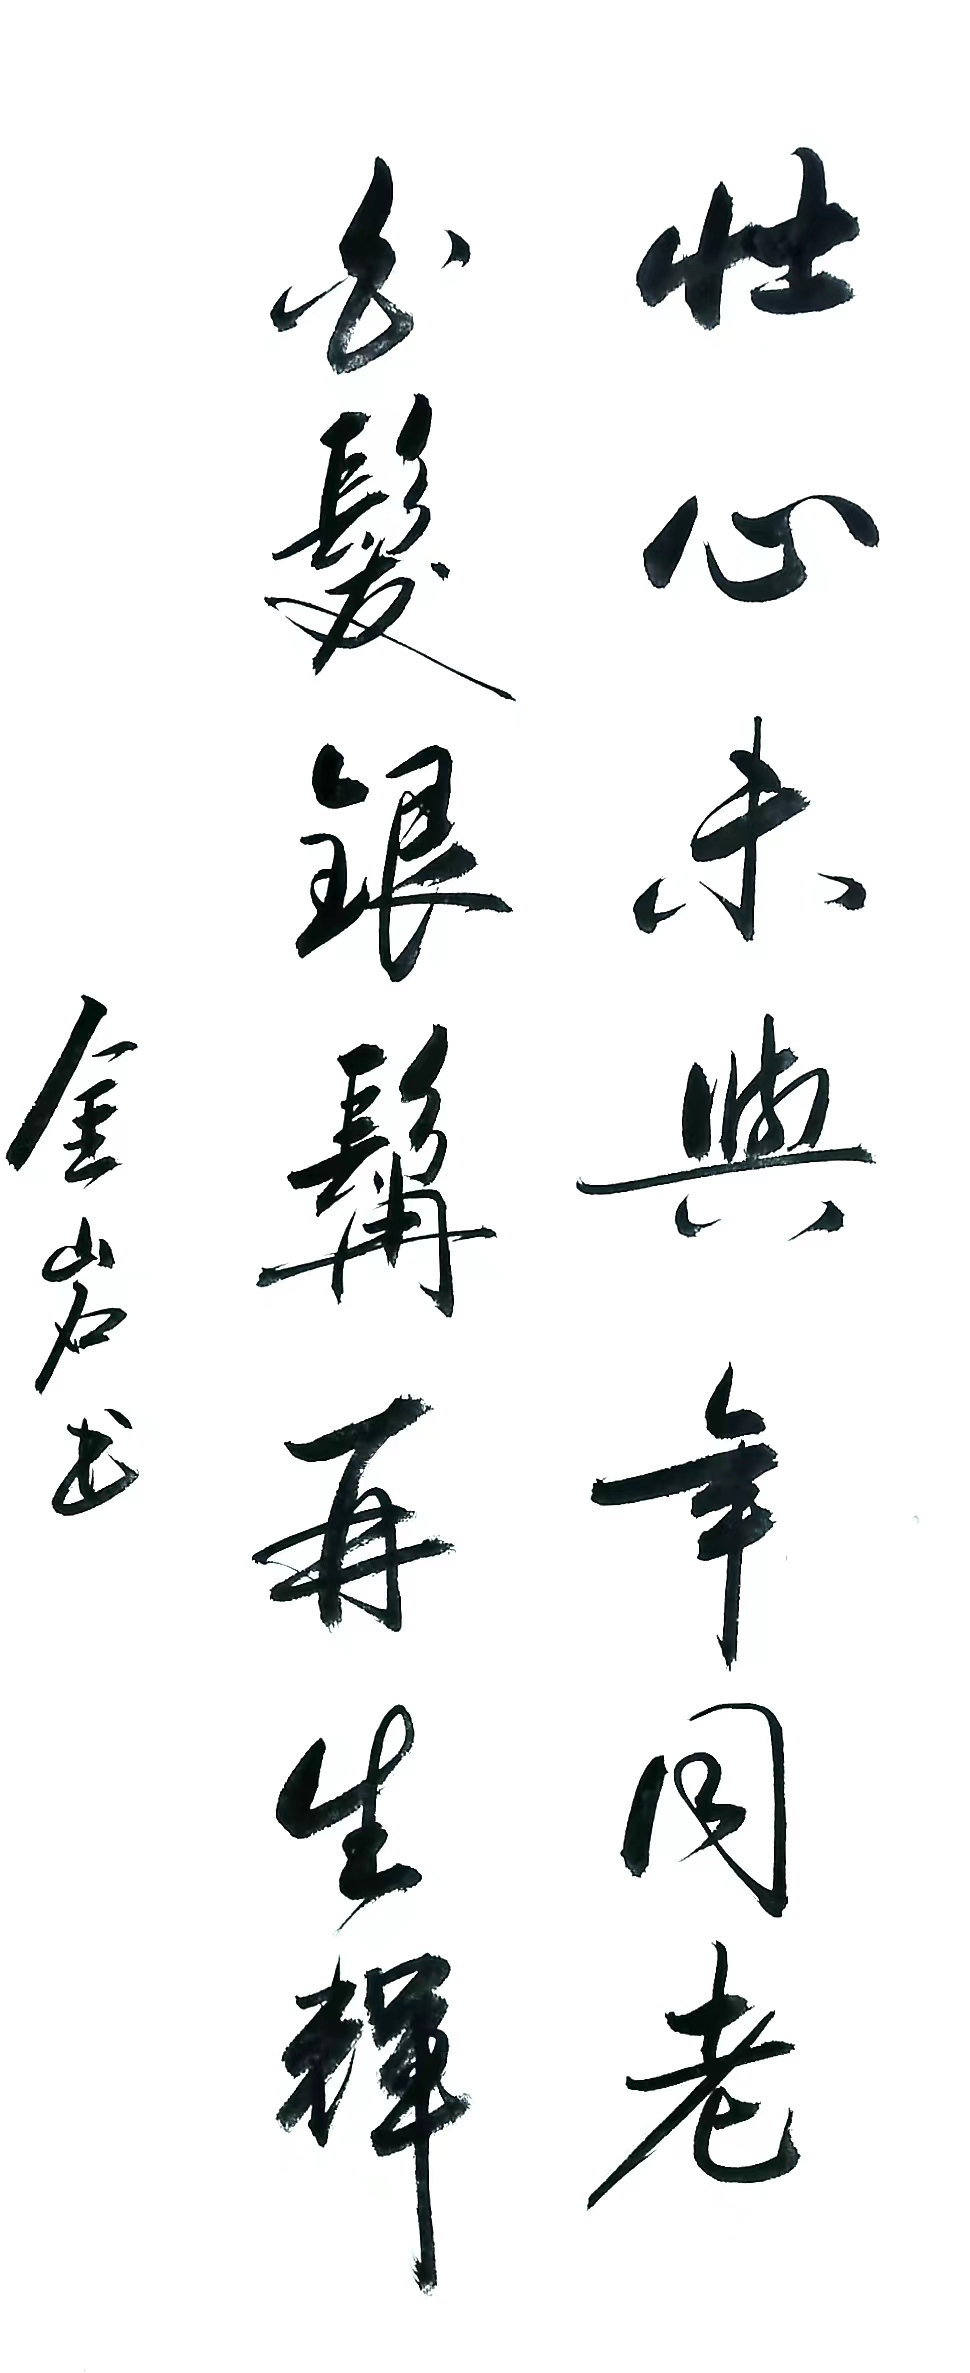 壯心未與年同老
白髮銀髯再生輝
金岩书